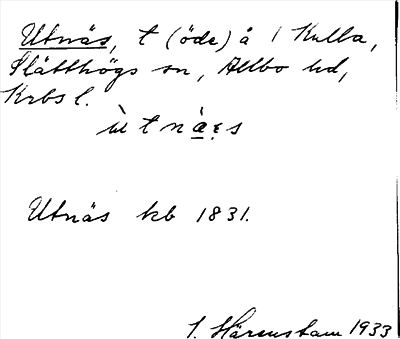 Utnäs, t (öde) å 1 Kulla,
Slätthögs sn, Allbo hd,
Krbs l.
ùtnàɛs
Utnäs kb 1831.
I. Härenstam 1933